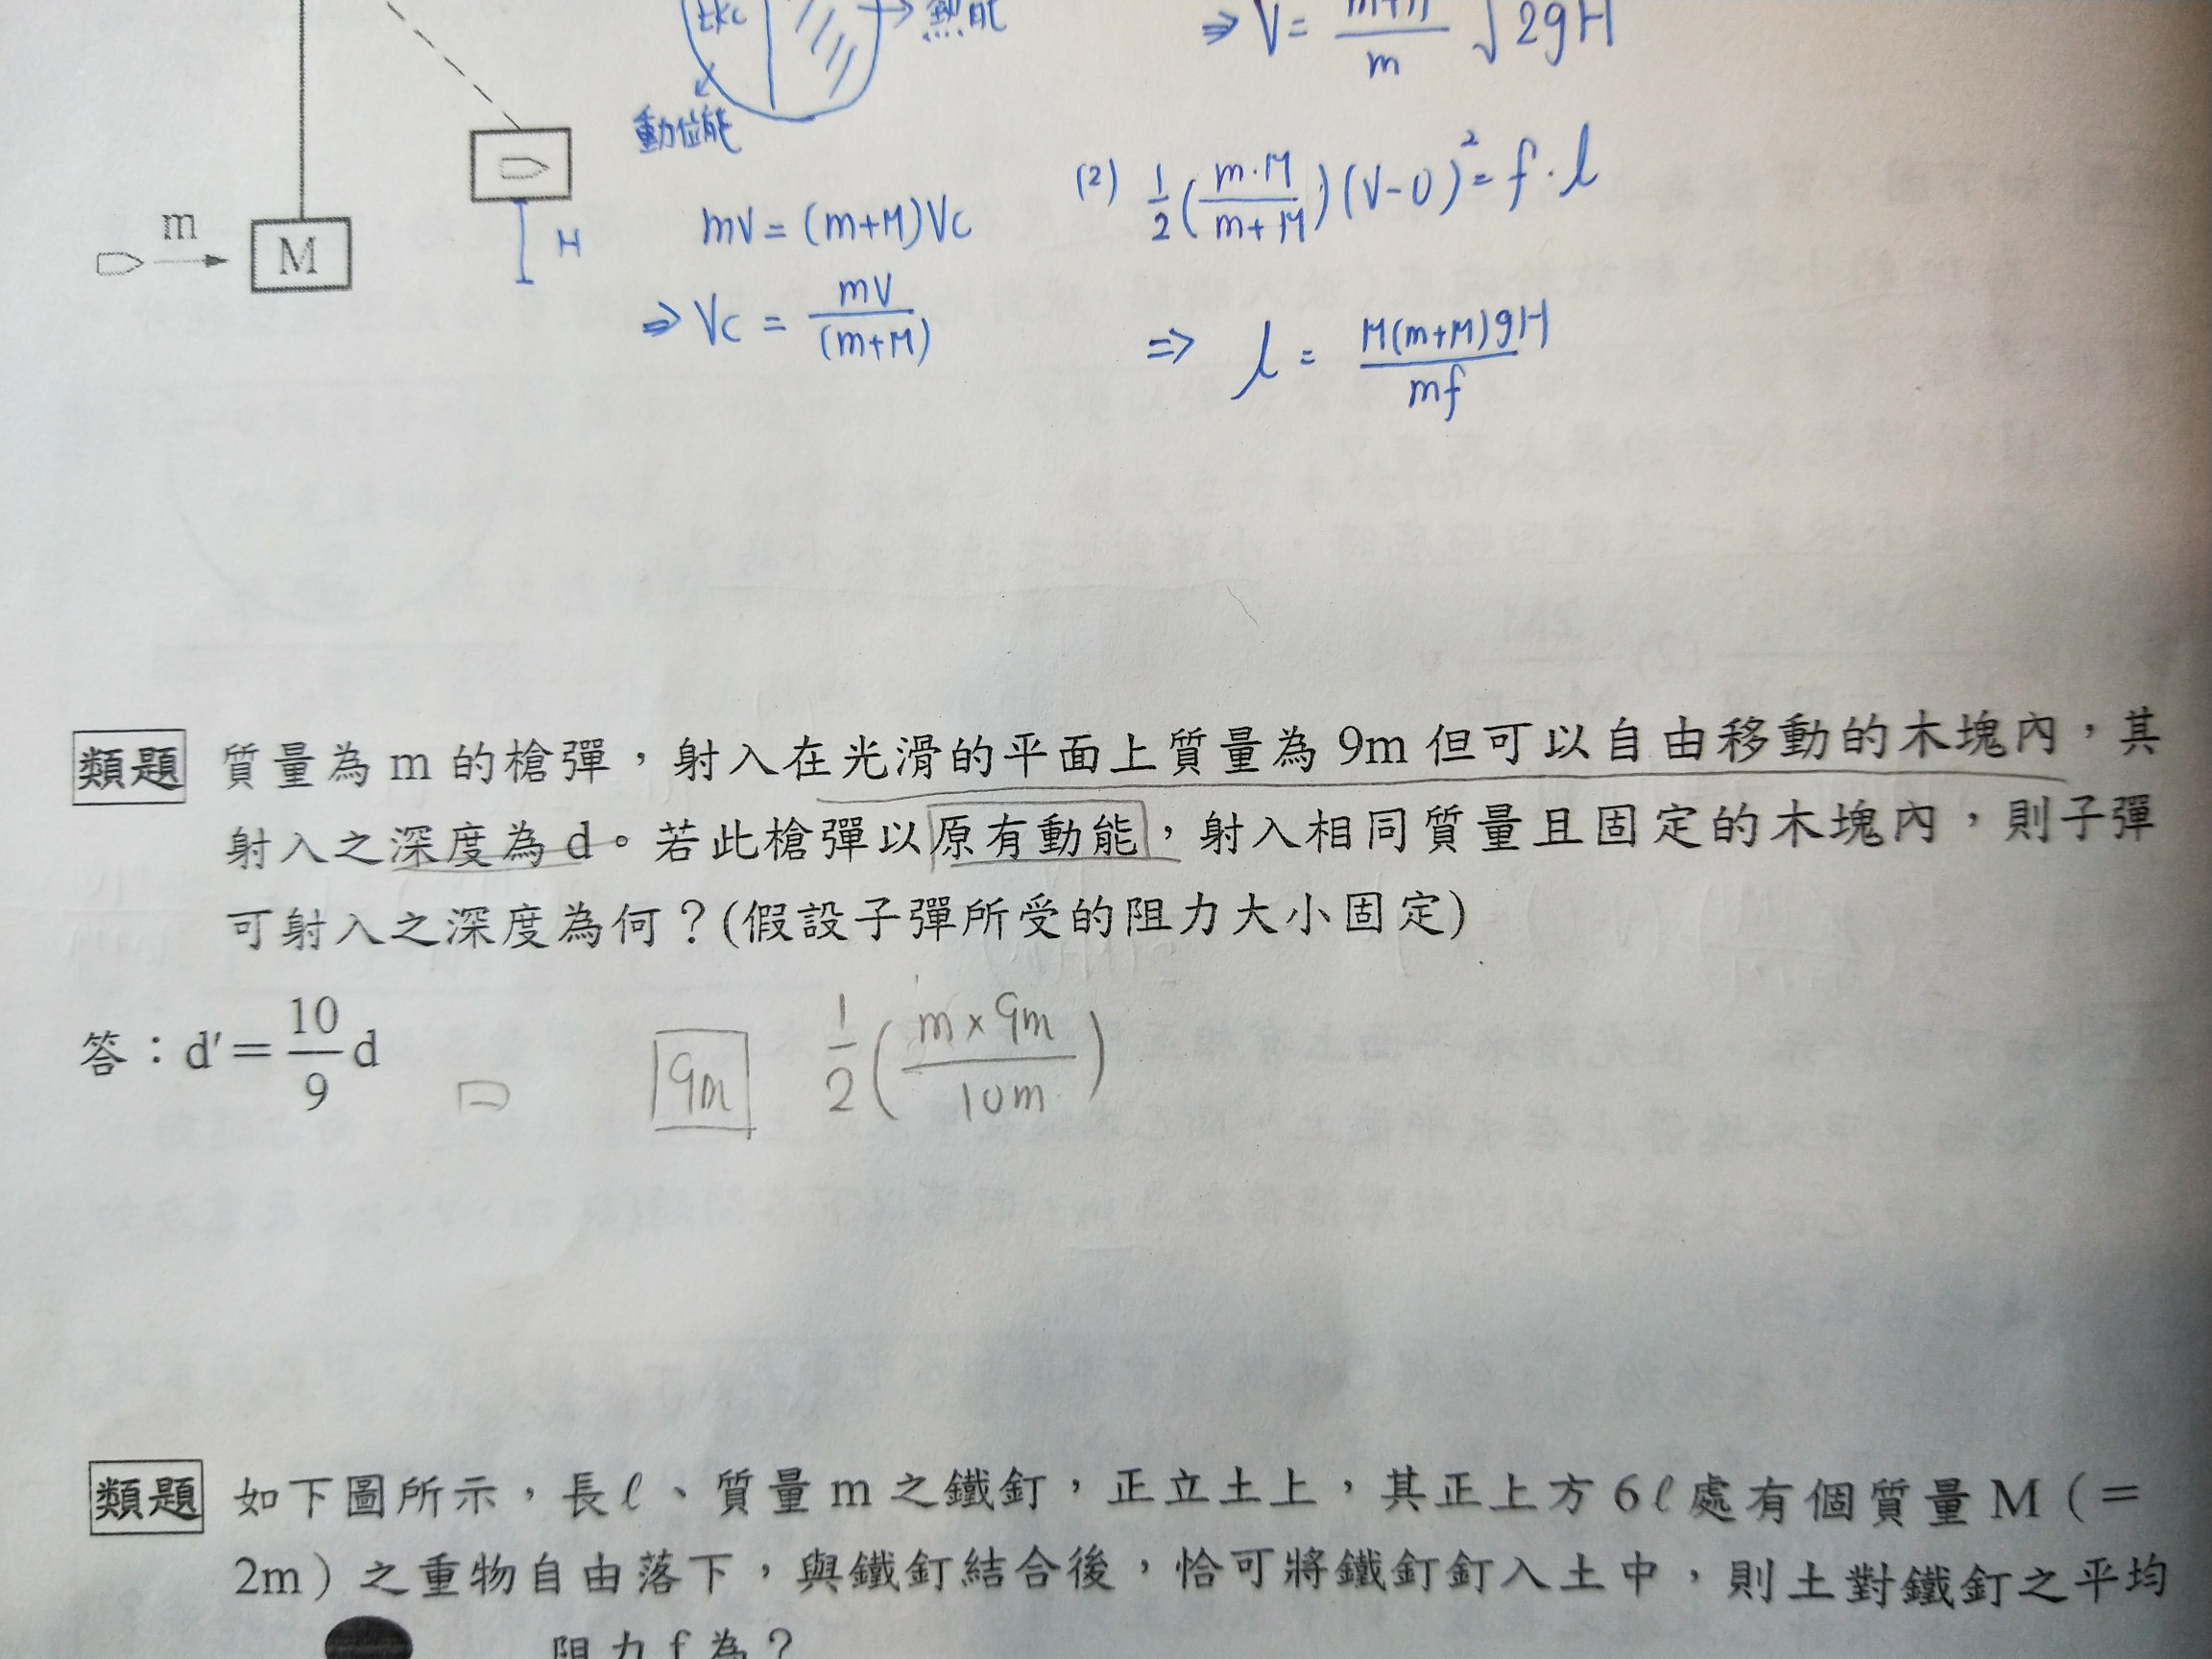 熱能
⇒ V = m+M / m √2gH
動位能
(2) 1/2 (m·M / m+M)(V-0)² = f·l
m
M
H
mV = (m+M)Vc
⇒ Vc = mV / (m+M)
⇒ l = M(m+M)gH / mf
類題 質量為 m 的槍彈，射入在光滑的平面上質量為 9m 但可以自由移動的木塊內，其
射入之深度為 d。若此槍彈以原有動能，射入相同質量且固定的木塊內，則子彈
可射入之深度為何？(假設子彈所受的阻力大小固定)
答：d′= 10/9 d
9m
1/2 (m×9m / 10m)
類題 如下圖所示，長ℓ、質量 m 之鐵釘，正立土上，其正上方 6ℓ處有個質量 M（＝
2m）之重物自由落下，與鐵釘結合後，恰可將鐵釘釘入土中，則土對鐵釘之平均
阻力 f 為？